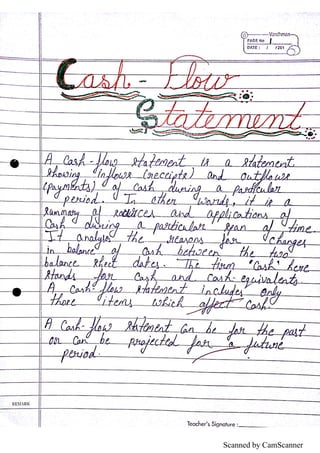 Vardhman
PAGE No. 1
DATE: / /201
Cash-Flow
Statement
A Cash-flow statement is a statement
showing inflows (receipts) and outflows
(payments) of cash during a particular
period. In other words, it is a
summary of sources and applications of
Cash during a particular span of time.
It analyse the reasons for changes
in balance of cash between the two
balance sheet dates. The term "Cash" here
stands for Cash and cash-equivalents
A Cash-flow statement includes only
those items which affect Cash.
A Cash-flow statement can be for the past
or can be projected for a future
period.
REMARK
Teacher's Signature :
Scanned by CamScanner